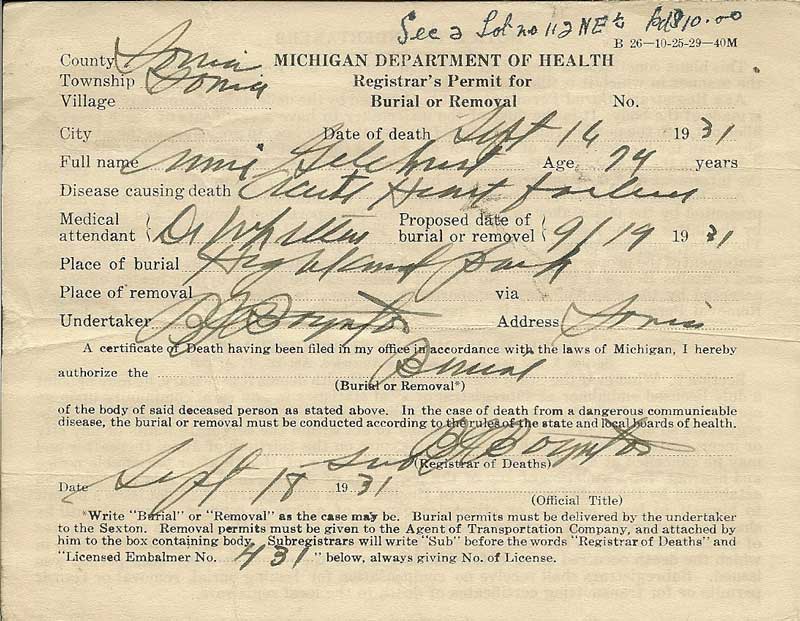 Sec 2 Lot no 112 NE¼ Pd $10.00
B 26—10-25-29—40M
County Ionia
MICHIGAN DEPARTMENT OF HEALTH
Township Ionia
Registrar's Permit for
Village
Burial or Removal No.
City Date of death Sept 16 1931
Full name Annie Gilchrist Age 74 years
Disease causing death Acute Heart failure
Medical attendant { Dr Whitten Proposed date of burial or removel { 9/19 1931
Place of burial Highland Park
Place of removal via
Undertaker Boynton Address Ionia
A certificate of Death having been filed in my office in accordance with the laws of Michigan, I hereby
authorize the Burial
(Burial or Removal*)
of the body of said deceased person as stated above. In the case of death from a dangerous communicable
disease, the burial or removal must be conducted according to the rules of the state and local boards of health.
Sub Boynton
(Registrar of Deaths)
Date Sept 18 1931
(Official Title)
*Write "Burial" or "Removal" as the case may be. Burial permits must be delivered by the undertaker
to the Sexton. Removal permits must be given to the Agent of Transportation Company, and attached by
him to the box containing body. Subregistrars will write "Sub" before the words "Registrar of Deaths" and
"Licensed Embalmer No. 431" below, always giving No. of License.